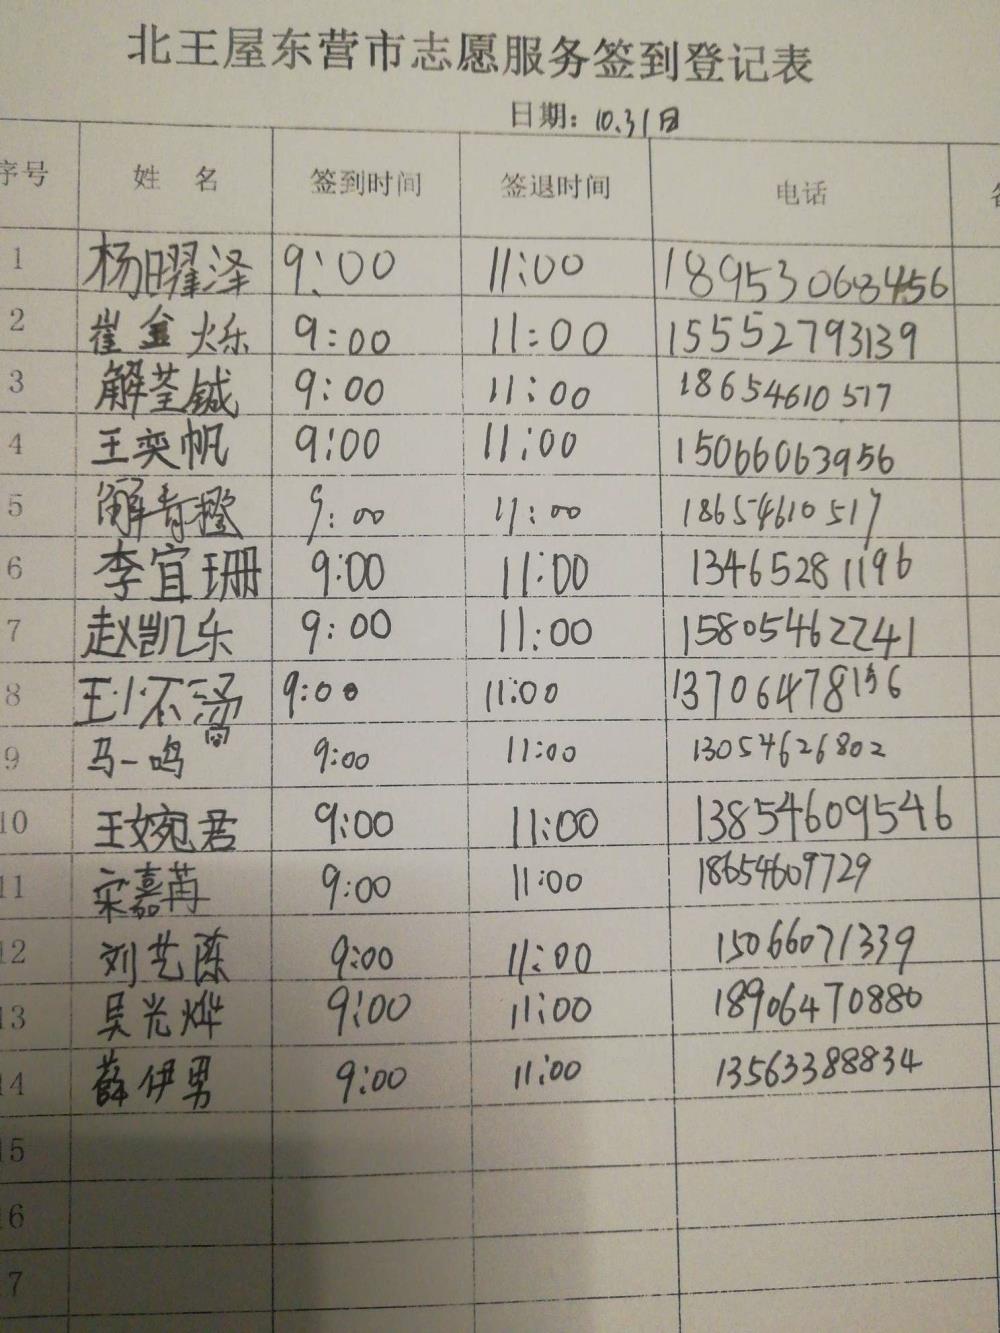 北王屋东营市志愿服务签到登记表
日期: 10.31日
序号 姓 名 签到时间 签退时间 电话
1 杨曜泽 9:00 11:00
2 崔金烁 9:00 11:00 15552793139
3 解荃铖 9:00 11:00 18654610517
4 王奕帆 9:00 11:00 15066063956
5 解青橙 9:00 11:00 18654610517
6 李宜珊 9:00 11:00 13465281196
7 赵凯乐 9:00 11:00 15805462241
8 9:00 11:00
9 马一鸣 9:00 11:00 13054626802
10 王婉君 9:00 11:00 13854609546
11 宋嘉苒 9:00 11:00 18654609729
12 刘艺陈 9:00 11:00 15066071339
13 吴光烨 9:00 11:00 18906470880
14 薛伊男 9:00 11:00 13563388834
15
16
17